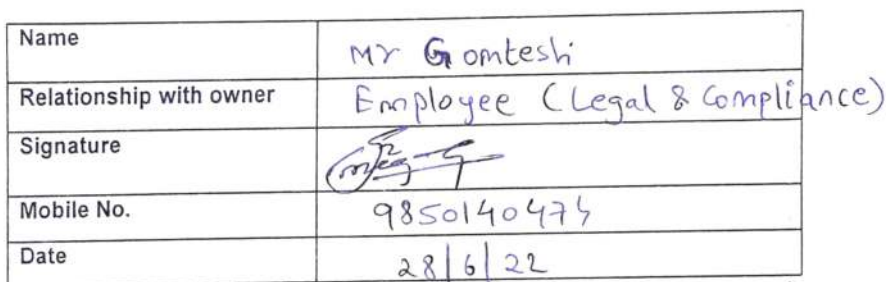 Name Mr Gomtesh
Relationship with owner Employee (Legal & Compliance)
Signature
Mobile No.
Date 28/6/22